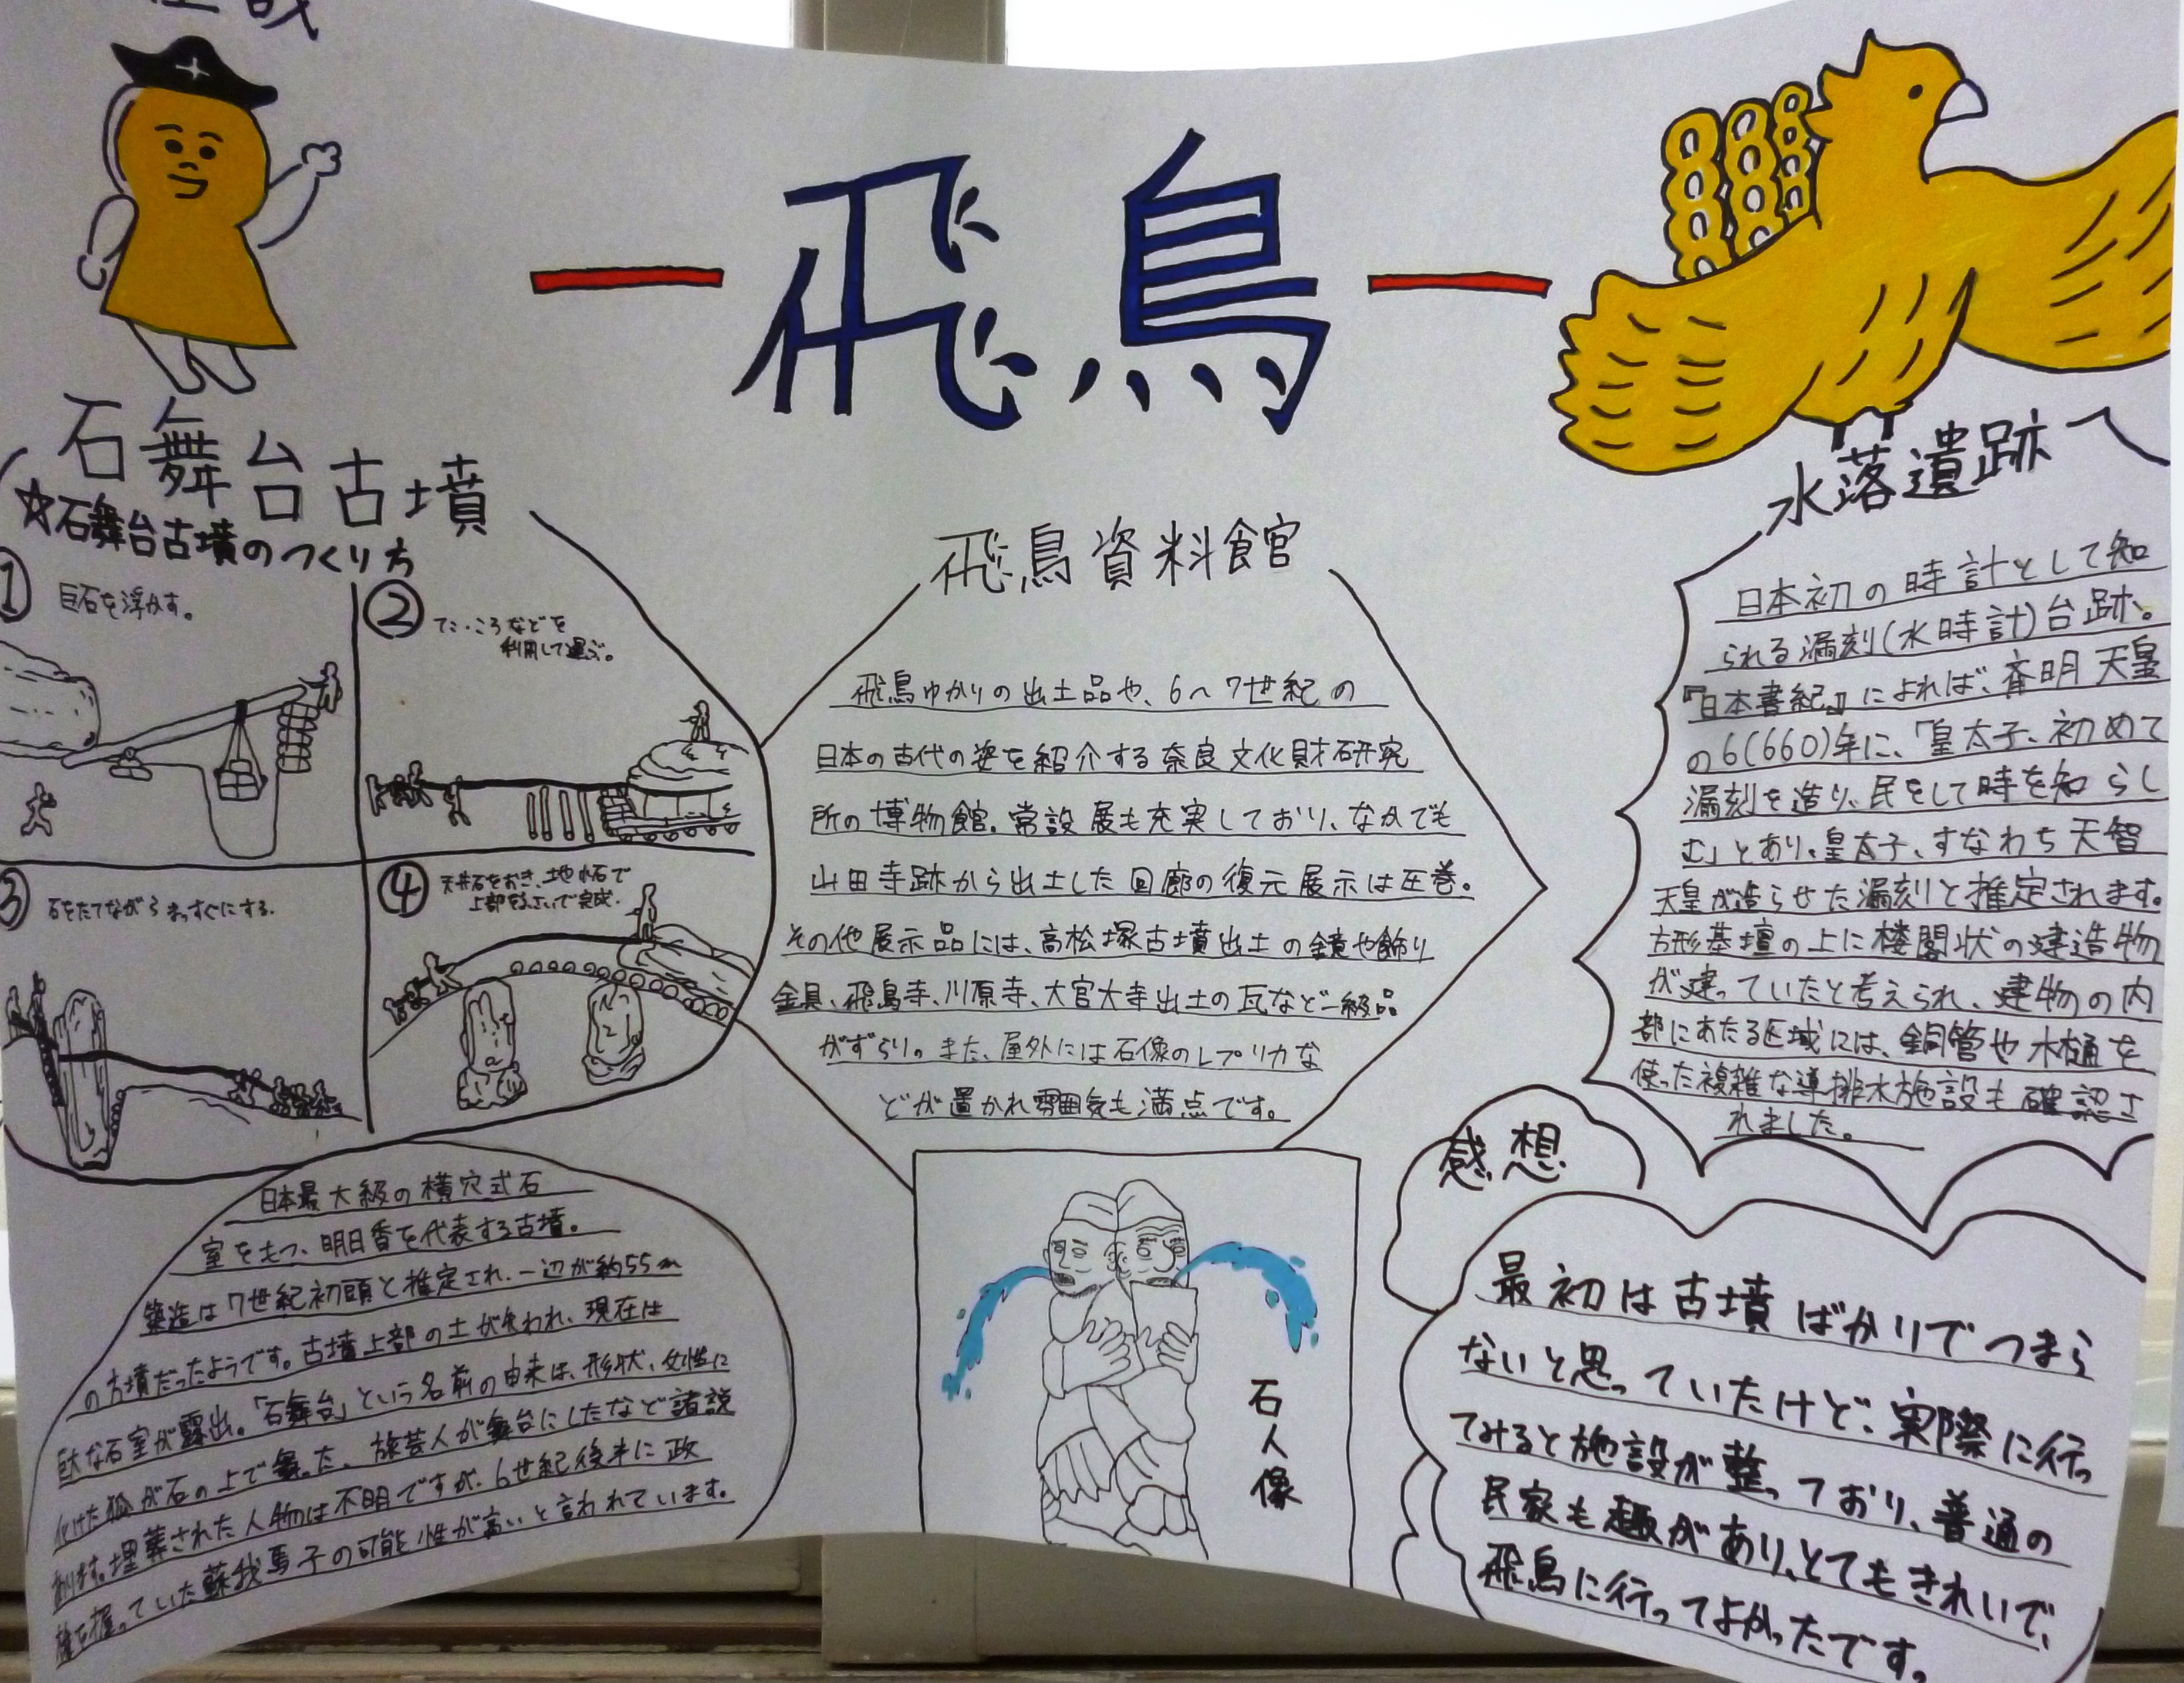 飛鳥
石舞台古墳
☆石舞台古墳のつくり方
① 巨石を浮かす。
② てこ・ころなどを
利用して運ぶ。
③ 石をたてながらまっすぐにする。
④ 天井石をおき、土や小石で
上部をふさいで完成。
日本最大級の横穴式石
室をもつ、明日香を代表する古墳。
築造は7世紀初頭と推定され、一辺が約55m
の方墳だったようです。古墳上部の土が失われ、現在は
巨大な石室が露出。「石舞台」という名前の由来は、形状、女性に
化けた狐が石の上で舞った、旅芸人が舞台にしたなど諸説
あります。埋葬された人物は不明ですが、6世紀後半に政
権を握っていた蘇我馬子の可能性が高いと言われています。
飛鳥資料館
飛鳥ゆかりの出土品や、6〜7世紀の
日本の古代の姿を紹介する奈良文化財研究
所の博物館。常設展も充実しており、なかでも
山田寺跡から出土した回廊の復元展示は圧巻。
その他展示品には、高松塚古墳出土の鏡や飾り
金具、飛鳥寺、川原寺、大官大寺出土の瓦など一級品
がずらり。また、屋外には石像のレプリカな
どが置かれ雰囲気も満点です。
石人像
水落遺跡
日本初の時計として知
られる漏刻(水時計)台跡。
『日本書紀』によれば、斉明天皇
の6(660)年に、「皇太子、初めて
漏刻を造り、民をして時を知らし
む」とあり、皇太子、すなわち天智
天皇が造らせた漏刻と推定されます。
方形基壇の上に楼閣状の建造物
が建っていたと考えられ、建物の内
部にあたる区域には、銅管や木樋を
使った複雑な導排水施設も確認さ
れました。
感想
最初は古墳ばかりでつまら
ないと思っていたけど、実際に行っ
てみると施設が整っており、普通の
民家も趣があり、とてもきれいで、
飛鳥に行ってよかったです。